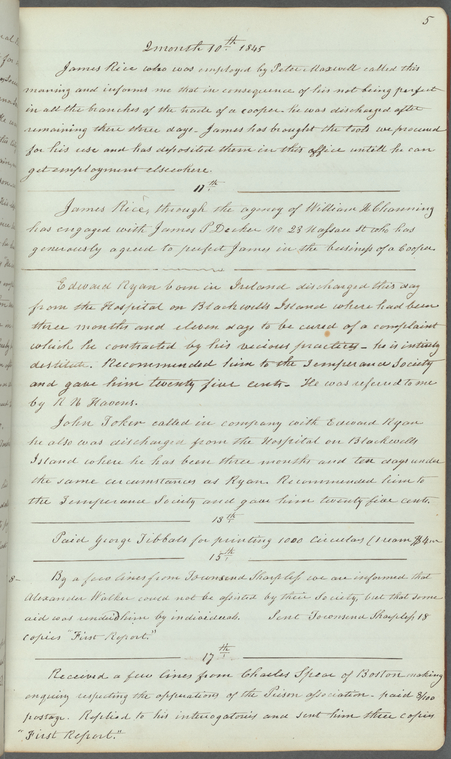 5
2 month 10th 1845
James Rice who was employed by Peter Maxwell called this
morning and informs me that in consequence of his not being perfect
in all the branches of the trade of a cooper he was discharged after
remaining there three days. James has brought the tools we procured
for his use and has deposited them in this office untill he can
get employment elsewhere.
11th
James Rice, through the agency of William H Channing
has engaged with James P Decker No 23 Nassau St who has
generously agreed to perfect James in the business of a Cooper
Edward Ryan born in Ireland discharged this day
from the Hospital on Blackwells Island where had been
three months and eleven days to be cured of a complaint
which he contracted by his vecious practices - he is intirely
destitute. Recommended him to the Temperance Society
and gave him twenty five cents - He was referred to me
by R N Havens.
John Toker called in company with Edward Ryan
he also was discharged from the Hospital on Blackwells
Island where he has been three months and ten days under
the same circumstances as Ryan. Recommended him to
the Temperance Society and gave him twenty five cents.
13th
Paid George Tibbals for printing 1000 Circulars (1 ream $4
15th
8- By a few lines from Townsend Sharpless we are informed that
Alexander Walker could not be assisted by their Society, but that some
aid was rendered him by individuals. Sent Townsend Sharpless 18
copies "First Report."
17th
Received a few lines from Charles Spear of Boston making
enquiry respecting the opperations of the Prison association - paid
postage. Replied to his interrogatories and sent him three copies
"First Report."